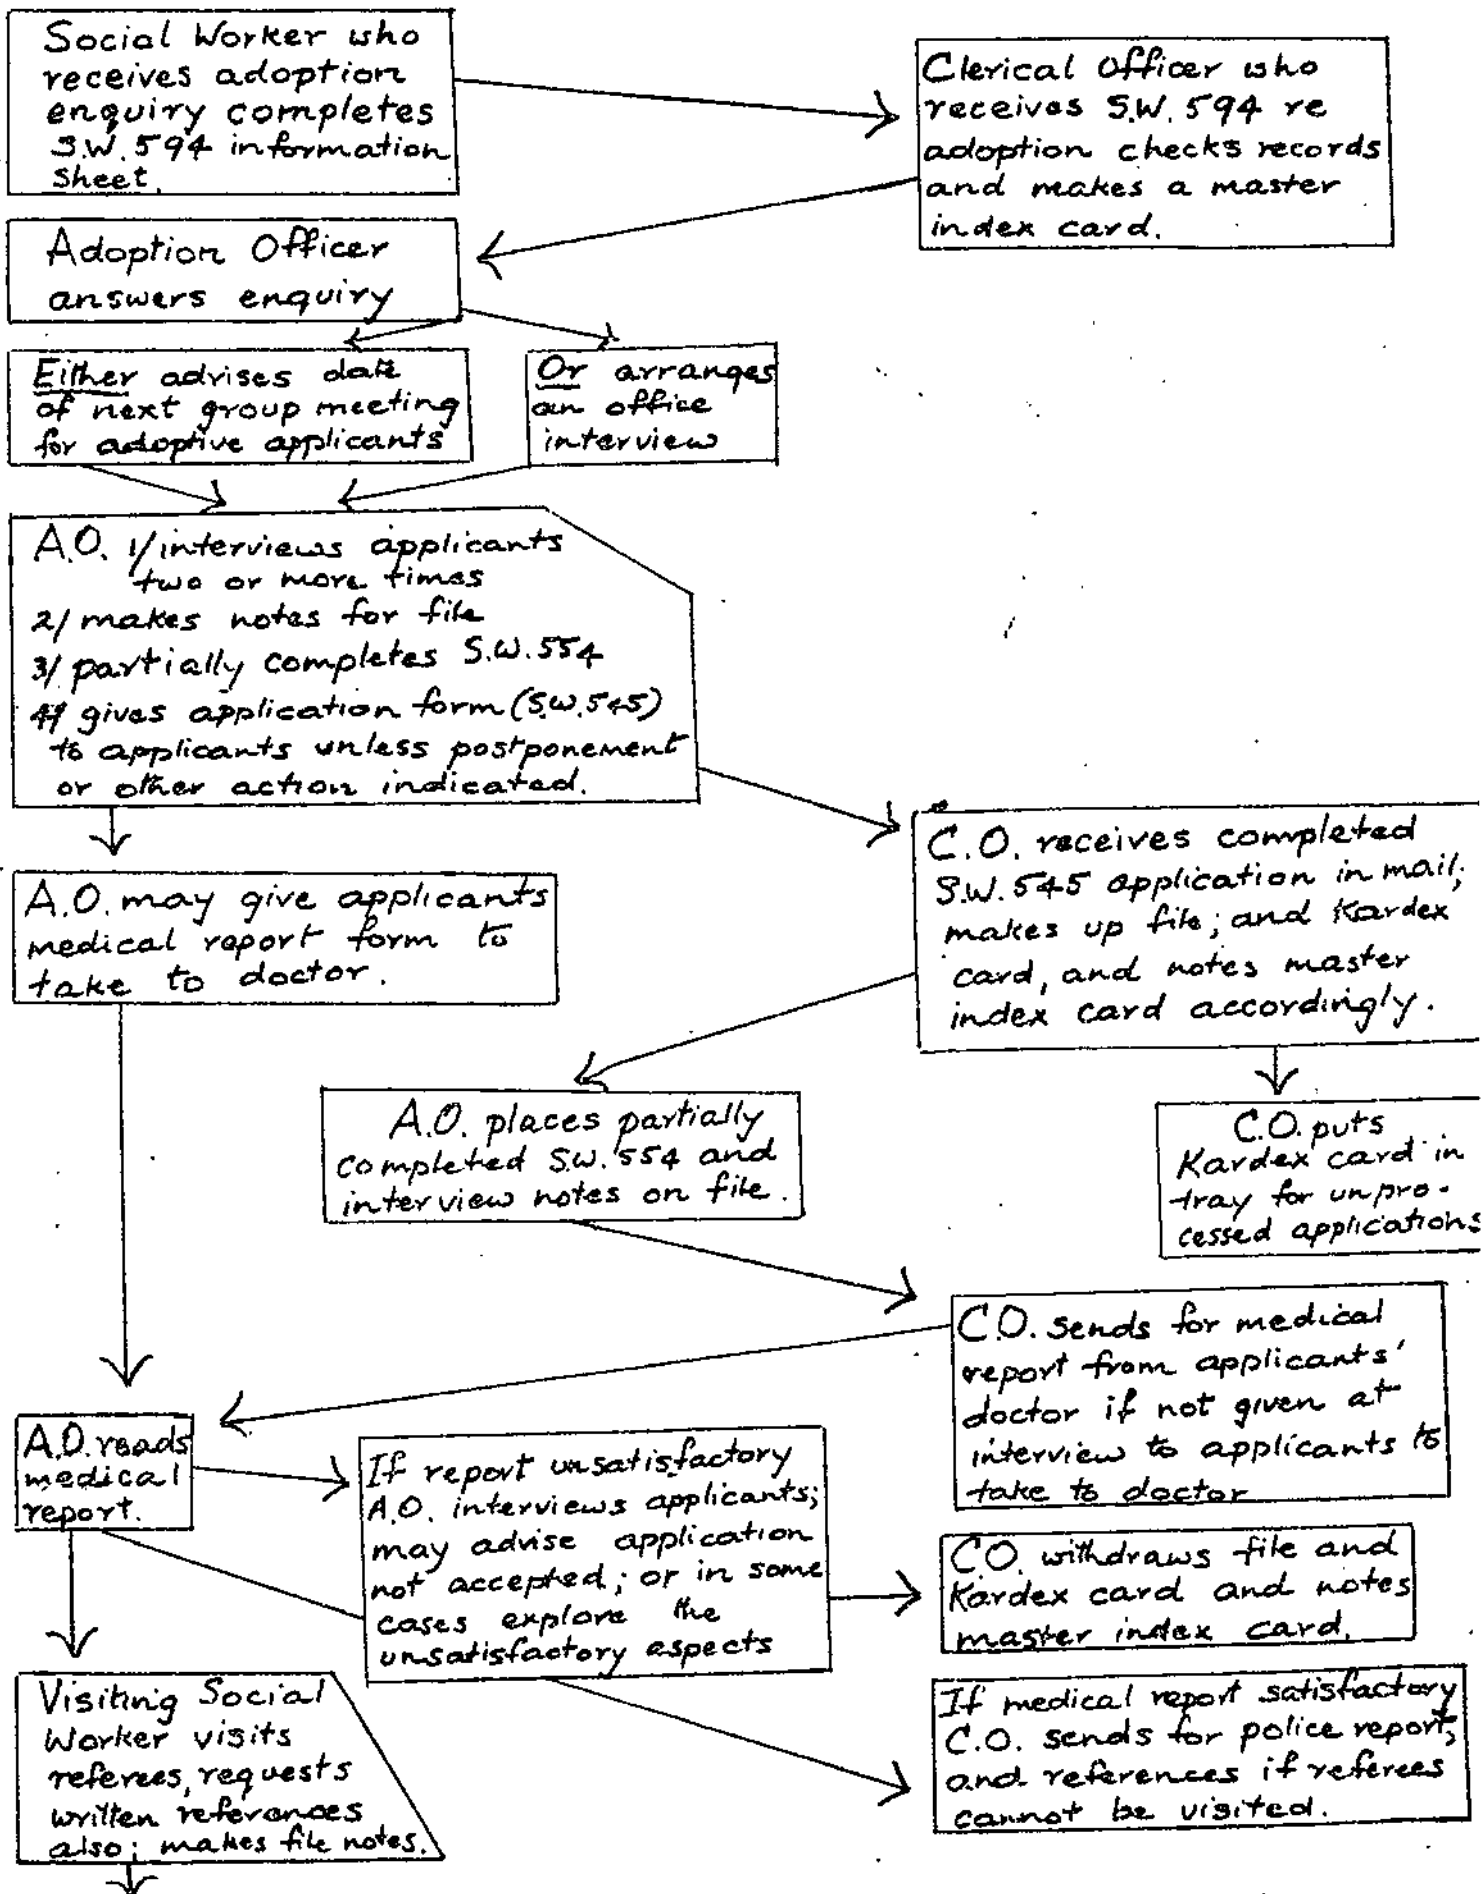 Social Worker who
receives adoption
enquiry completes
S.W. 594 information
sheet.
Clerical Officer who
receives S.W. 594 re
adoption checks records
and makes a master
index card.
Adoption Officer
answers enquiry
Either advises date
of next group meeting
for adoptive applicants
Or arranges
an office
interview
A.O. 1/ interviews applicants
two or more times
2/ makes notes for file
3/ partially completes S.W. 554
4/ gives application form (S.W. 545)
to applicants unless postponement
or other action indicated.
C.O. receives completed
S.W. 545 application in mail;
makes up file; and Kardex
card, and notes master
index card accordingly.
A.O. may give applicants
medical report form to
take to doctor.
A.O. places partially
completed S.W. 554 and
interview notes on file.
C.O. puts
Kardex card in
tray for unpro-
cessed applications
C.O. sends for medical
report from applicants'
doctor if not given at
interview to applicants to
take to doctor
A.O. reads
medical
report.
If report unsatisfactory
A.O. interviews applicants;
may advise application
not accepted; or in some
cases explore the
unsatisfactory aspects
C.O. withdraws file and
Kardex card and notes
master index card.
Visiting Social
Worker visits
referees, requests
written references
also; makes file notes.
If medical report satisfactory
C.O. sends for police report,
and references if referees
cannot be visited.